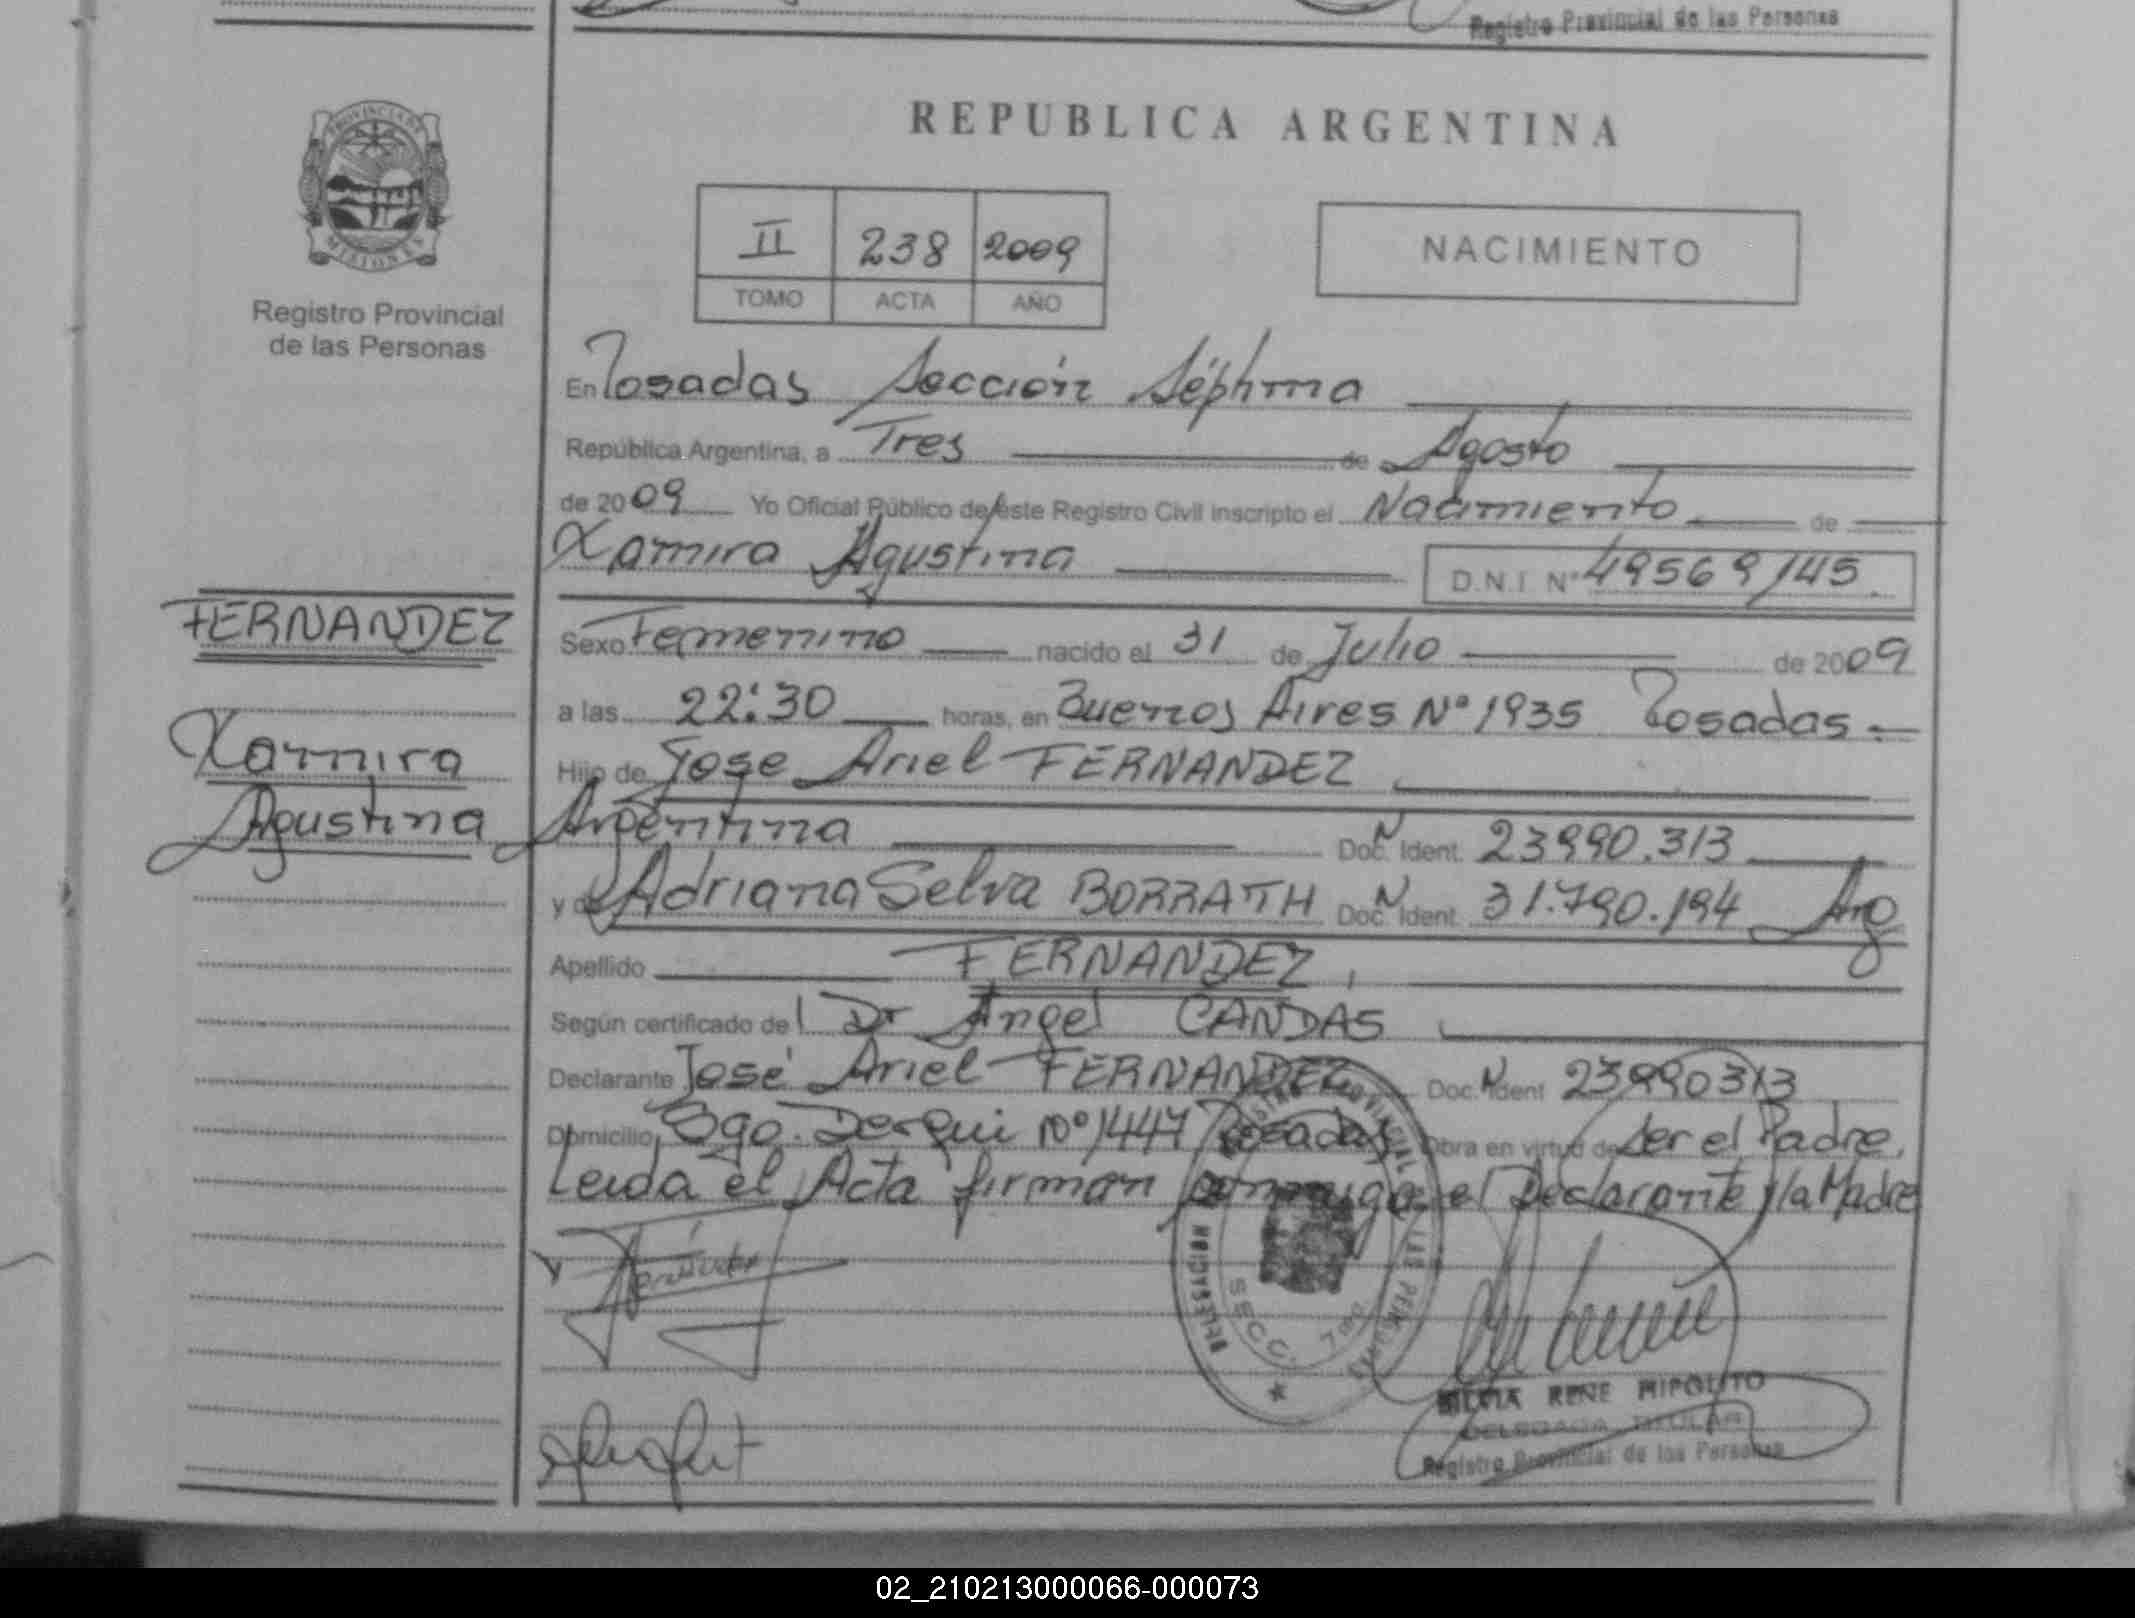 Registro Provincial de las Personas
PROVINCIA DE
MISIONES
Registro Provincial
de las Personas
REPUBLICA ARGENTINA
II 238 2009
TOMO ACTA AÑO
NACIMIENTO
En Posadas Sección Séptima
República Argentina, a Tres de Agosto
de 2009 Yo Oficial Público de este Registro Civil inscripto el Nacimiento de
Xamira Agustina D.N.I Nº 49569145
FERNANDEZ
Xamira
Agustina
Sexo Femenino nacido el 31 de Julio de 2009
a las 22:30 horas, en Buenos Aires Nº 1935 Posadas.-
Hijo de Jose Ariel FERNANDEZ
Argentina Doc. N Ident. 23990.313
y de Adriana Selva BORRATH Doc. N Ident. 31.790.194 Arg
Apellido FERNANDEZ,
Según certificado del Dr Angel CANDAS
Declarante José Ariel FERNANDEZ Doc. N Ident 23990313
Domicilio Sgo. Derqui Nº 1447 Posadas Obra en virtud de Ser el Padre.
Leida el Acta firman conmigo el Declarante y la Madre
DELEGACION REGISTRO PROVINCIAL DE LAS PERSONAS
SECC. 7ma
SILVIA RENE HIPOLITO
DELEGADA TITULAR
Registro Provincial de las Personas
02_210213000066-000073